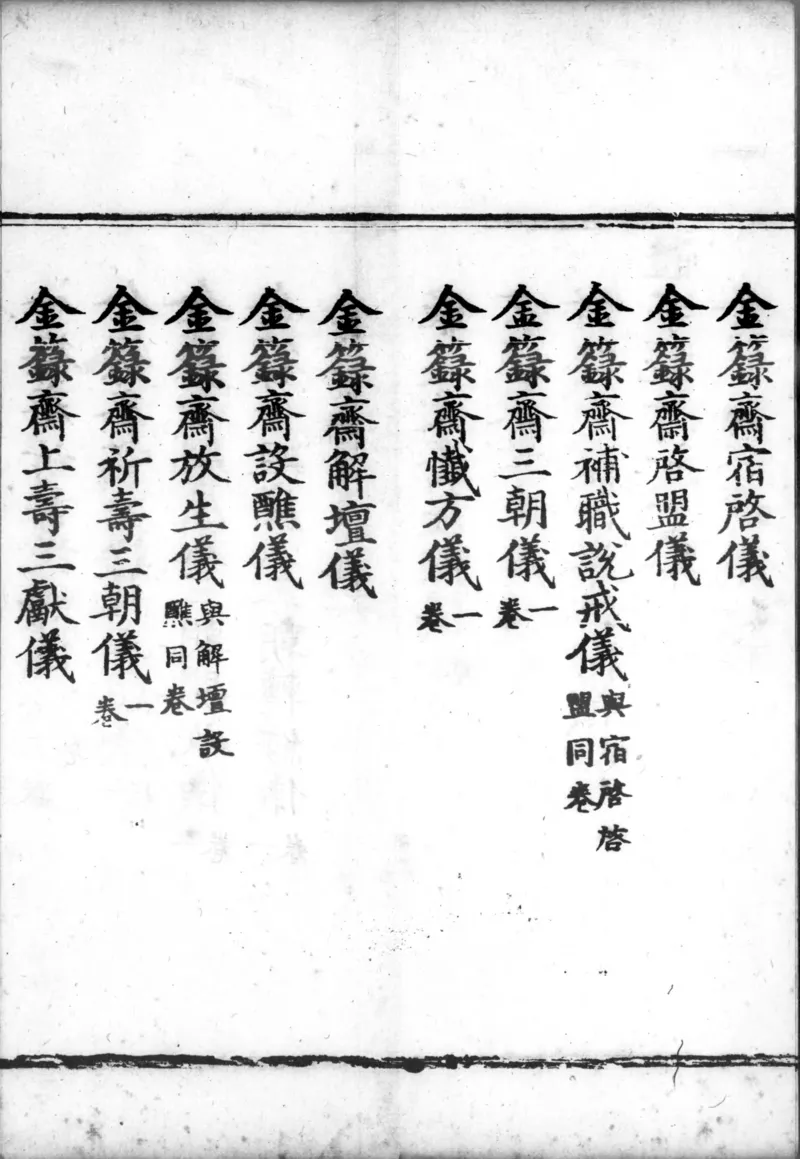 金籙齋宿啓儀
金籙齋啓盟儀
金籙齋補職說戒儀 與宿啓啓盟同卷
金籙齋三朝儀 一卷
金籙齋懺方儀 一卷
金籙齋解壇儀
金籙齋設醮儀
金籙齋放生儀 與解壇設醮同卷
金籙齋祈壽三朝儀 一卷
金籙齋上壽三獻儀